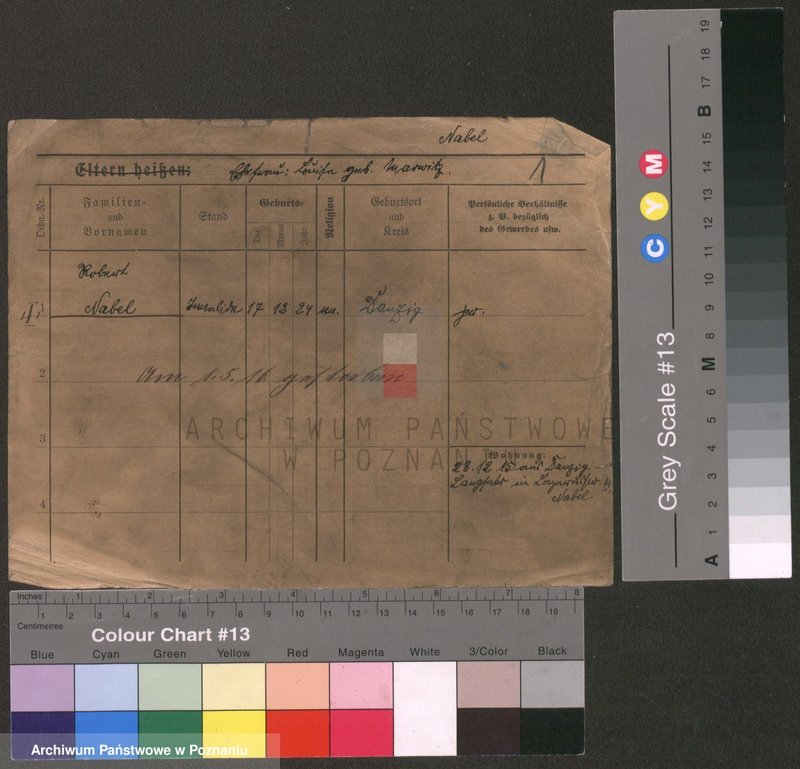 Nabel
Eltern heißen: Ehefrau: Louise geb. Marwitz.
1
Ordn. Nr.
Familien- und Vornamen
Stand
Geburts-
Tag
Monat
Jahr
Religion
Geburtsort und Kreis
Persönliche Verhältnisse z. B. bezüglich des Gewerbes usw.
Robert
1 Nabel Invalide 17 12 24 Danzig pr.
2 Am 1.5.16 gestorben
3
4
Wohnung:
28.12.15 aus Danzig -
Langfuhr in
Nabel
ARCHIWUM PAŃSTWOWE
W POZNANI
Inches 1 2 3 4 5 6 7 8
Centimetres 1 2 3 4 5 6 7 8 9 10 11 12 13 14 15 16 17 18 19
Colour Chart #13
Blue Cyan Green Yellow Red Magenta White 3/Color Black
Archiwum Państwowe w Poznaniu
Grey Scale #13
C Y M
A 1 2 3 4 5 6 M 8 9 10 11 12 13 14 15 B 17 18 19